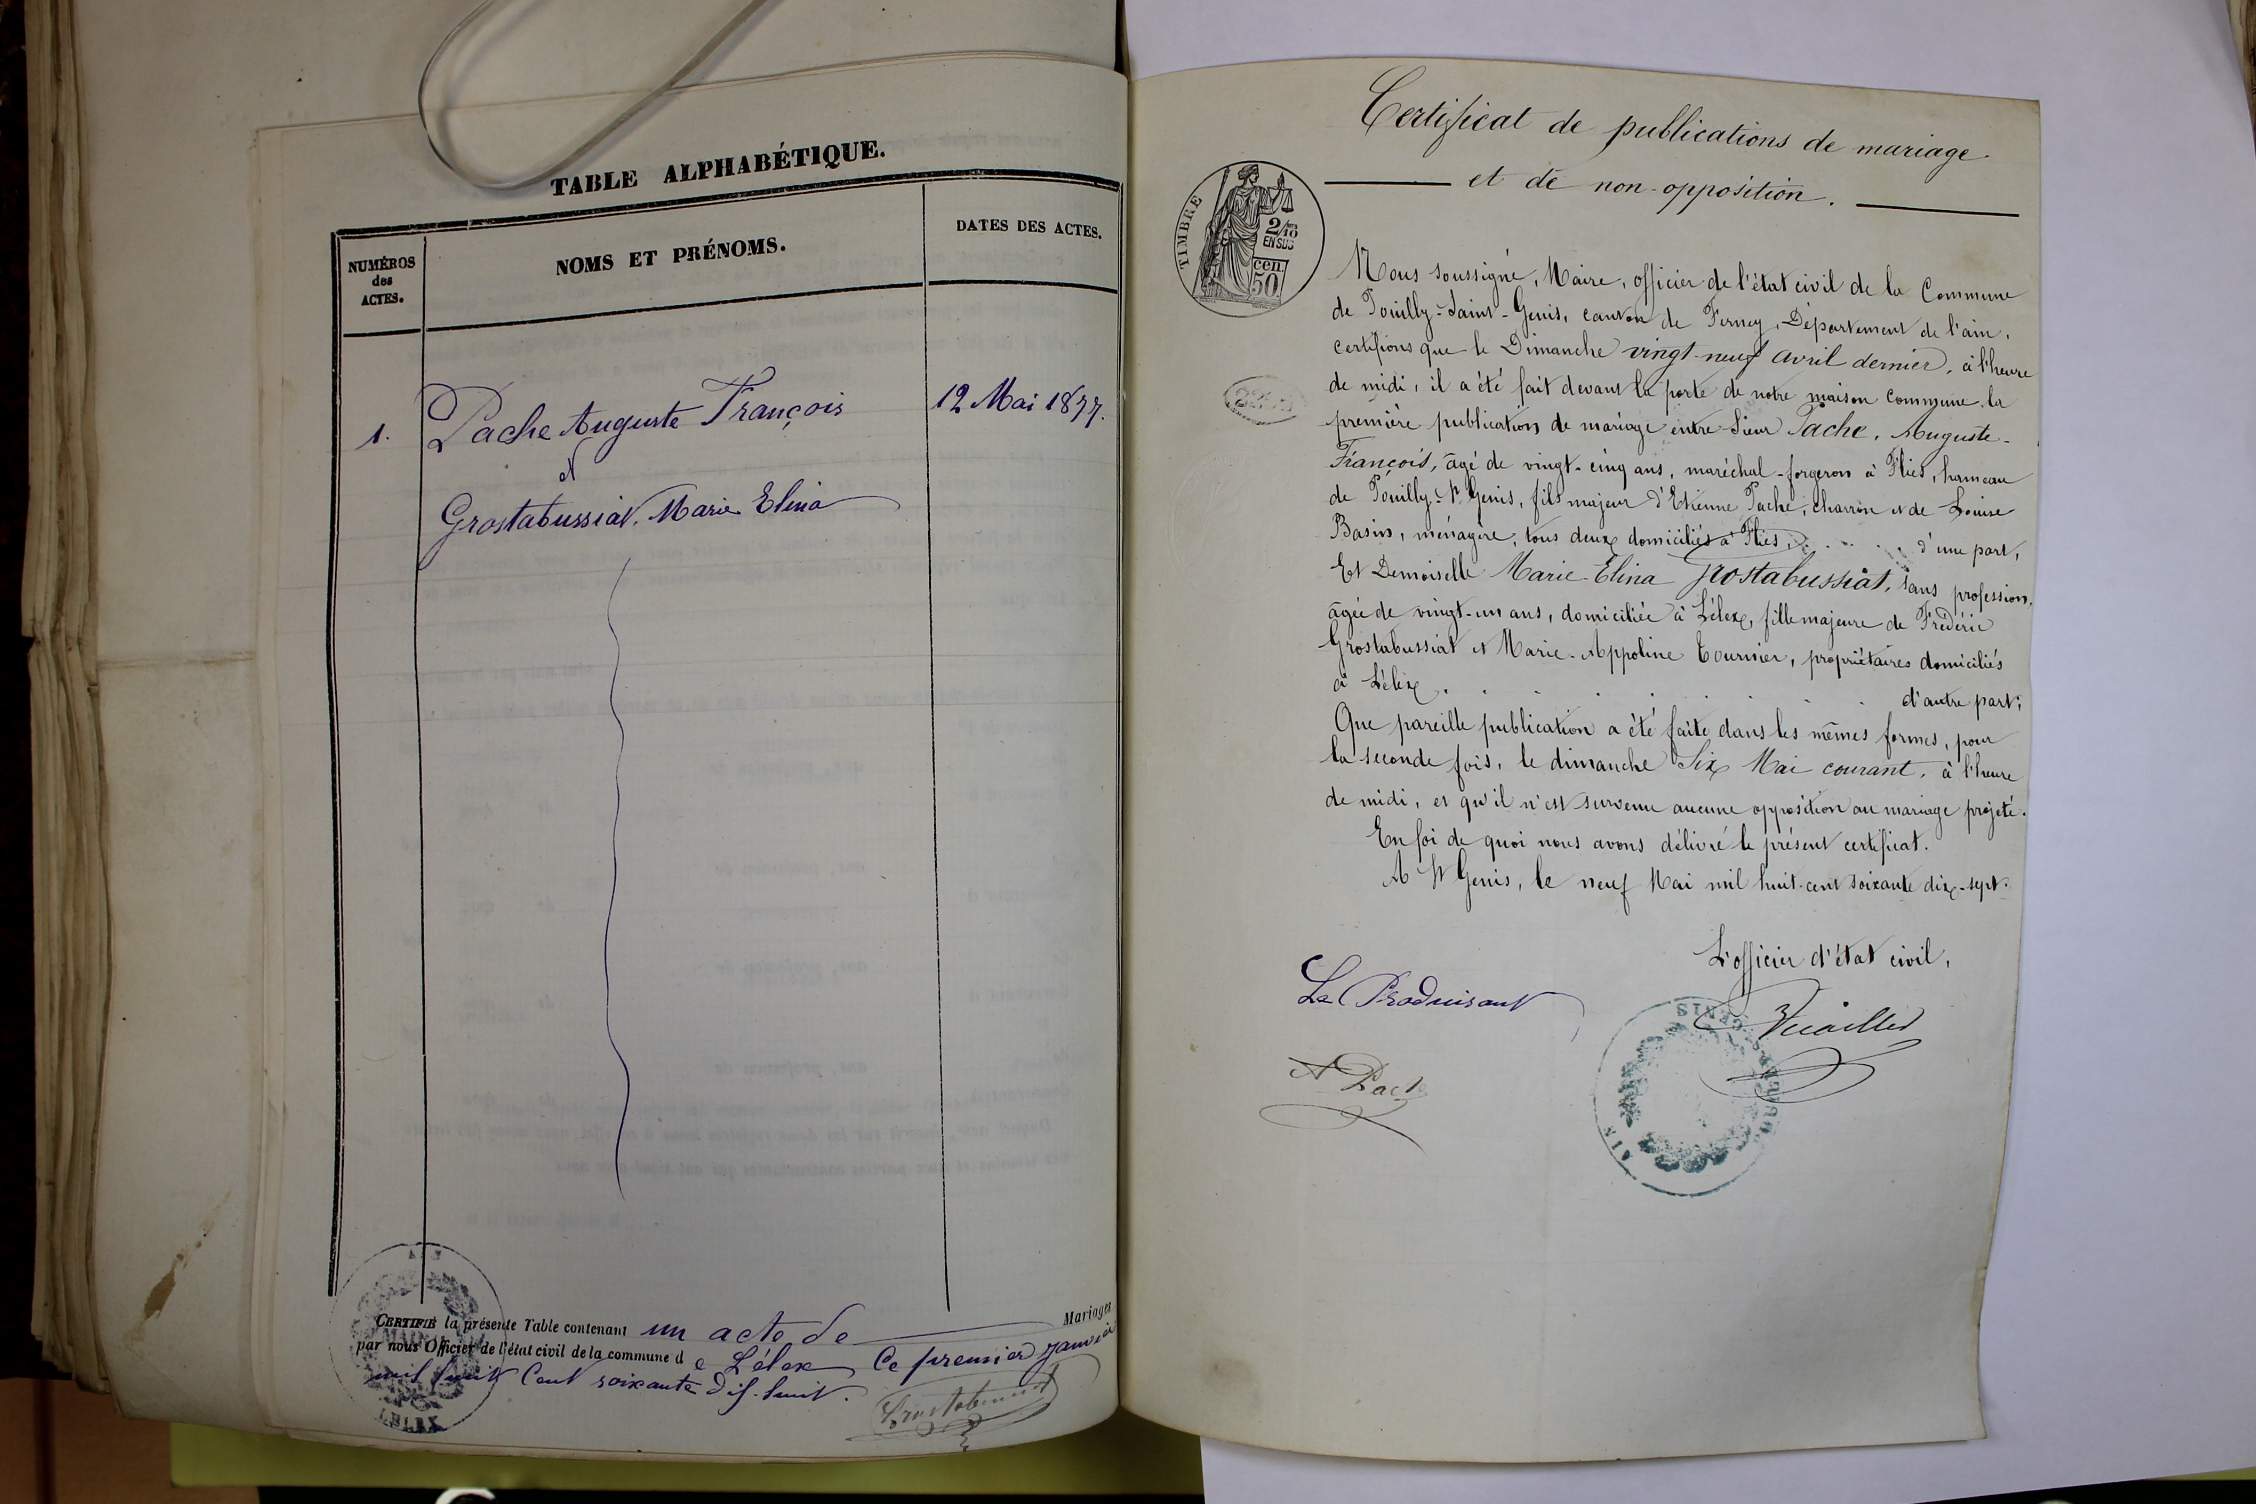 TABLE ALPHABÉTIQUE.
NUMÉROS
des
ACTES.
NOMS ET PRÉNOMS.
DATES DES ACTES.
1.
Pache Auguste François
12 Mai 1877.
et
Grostabussiat, Marie Elina
CERTIFIÉ la présente Table contenant un acte de Mariages
par nous Officier de l'état civil de la commune de Lélex Ce premier Janvier
mil huit Cent soixante dix-huit.
Grostabussiat
AIN
MAIRIE
LELEX
Certificat de publications de mariage
et de non-opposition.
TIMBRE
2/10
EN SUS
50 cen.
Nous soussigné, Maire, officier de l'état civil de la Commune
de Pouilly-Saint-Genis, canton de Ferney, Département de l'ain,
certifions que le Dimanche vingt-neuf avril dernier, à l'heure
de midi, il a été fait devant la porte de notre maison commune la
première publication de mariage entre Sieur Pache, Auguste-
François, âgé de vingt-cinq ans, maréchal-forgeron à Flies, hameau
de Pouilly-St Genis, fils majeur d'Etienne Pache, charron et de Louise
Basin, ménagère, tous deux domiciliés à Flies, . . . . d'une part,
Et Demoiselle Marie-Elina Grostabussiat, sans profession,
âgée de vingt-un ans, domiciliée à Lélex, fille majeure de Frédéric
Grostabussiat et Marie-Appoline Tournier, propriétaires domiciliés
à Lélex . . . . . . d'autre part;
Que pareille publication a été faite dans les mêmes formes, pour
la seconde fois, le dimanche Six Mai courant, à l'heure
de midi, et qu'il n'est survenu aucune opposition au mariage projeté.
En foi de quoi nous avons délivré le présent certificat.
A St Genis, le neuf Mai mil huit-cent soixante dix-sept.
L'officier d'état civil,
Le Produisant
A Pache
GENIS
AIN